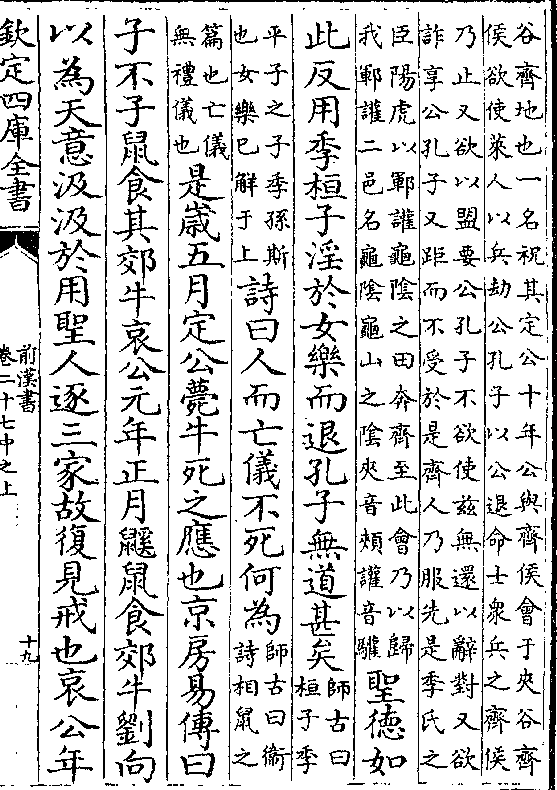 谷齊地也一名祝其定公十年公與齊侯會于夾谷齊
侯欲使萊人以兵劫公孔子以公退命士衆兵之齊侯
乃止又欲以盟要公孔子不欲使兹無還以辭對又欲
詐享公孔子又距而不受於是齊人乃服先是季氏之
臣陽虎以鄆讙龜陰之田奔齊至此會乃以歸
我鄆讙二邑名龜陰龜山之陰夾音頰讙音驩
聖德如
此反用季桓子淫於女樂而退孔子無道甚矣
師古曰
桓子季
平子之子季孫斯
也女樂巳解于上
詩曰人而亡儀不死何為
師古曰衞
詩相鼠之
篇也亡儀
無禮儀也
是嵗五月定公薨牛死之應也京房易傳曰
子不子鼠食其郊牛哀公元年正月鼷鼠食郊牛劉向
以為天意汲汲於用聖人逐三家故復見戒也哀公年
欽定四庫全書
前漢書
卷二十七中之上
十九